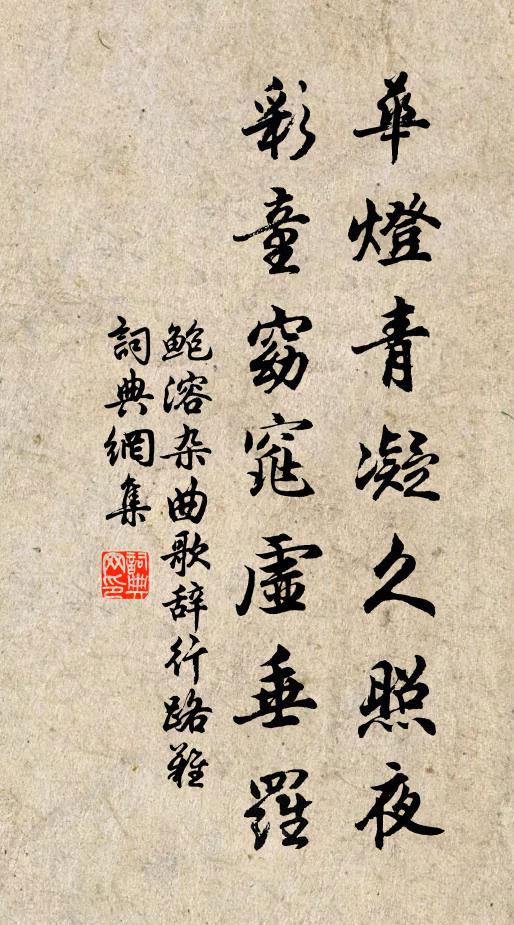 華燈青凝久照夜
彩童窈窕虛垂羅
鮑溶杂曲歌辞行路難
詞典網集
詞典网印